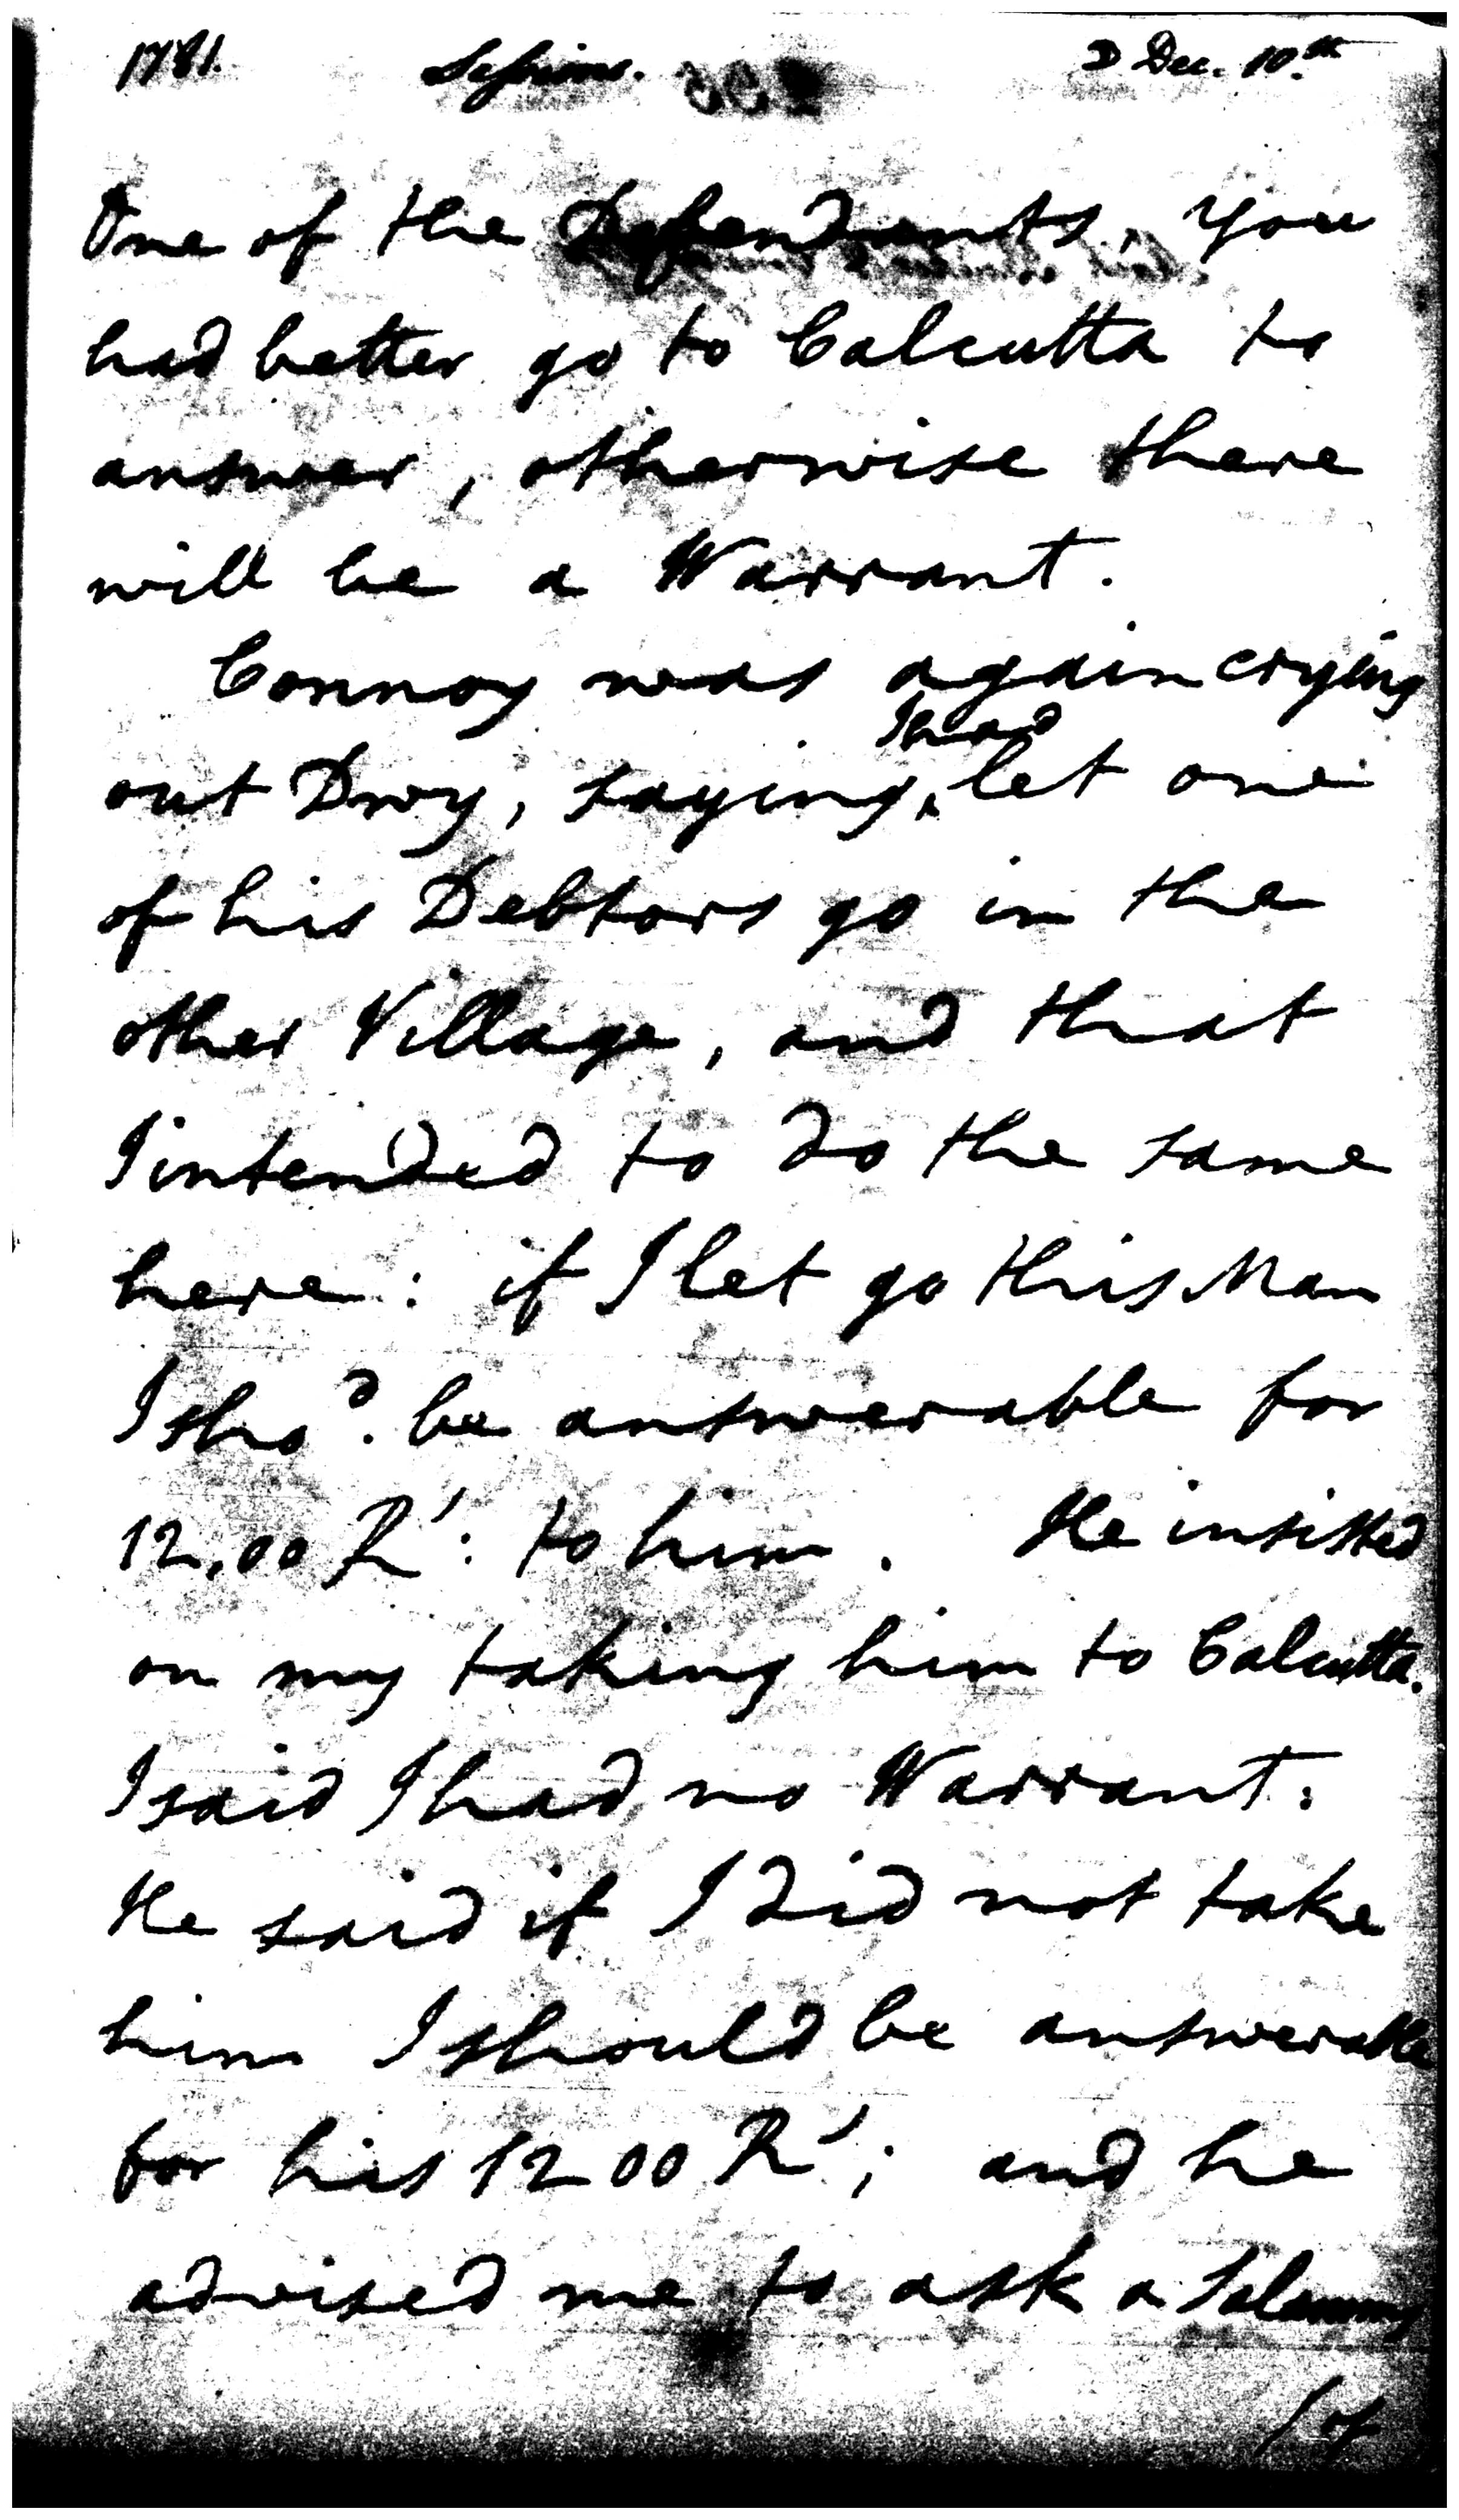 1781. Sessions. D Dec. 10.th
One of the Defendants, You
had better go to Calcutta to
answer, otherwise there
will be a Warrant.
Connoy was again crying
out Dwy, saying, I had let one
of his Debtors go in the
other Village, and that
I intended to do the same
here: if I let go this Man
I sho.d be answerable for
12,00 R.s: to him. He insisted
on my taking him to Calcutta.
I said I had no Warrant:
He said if I did not take
him I should be answerable
for his 1200 R.s; and he
advised me to ask a Salammy